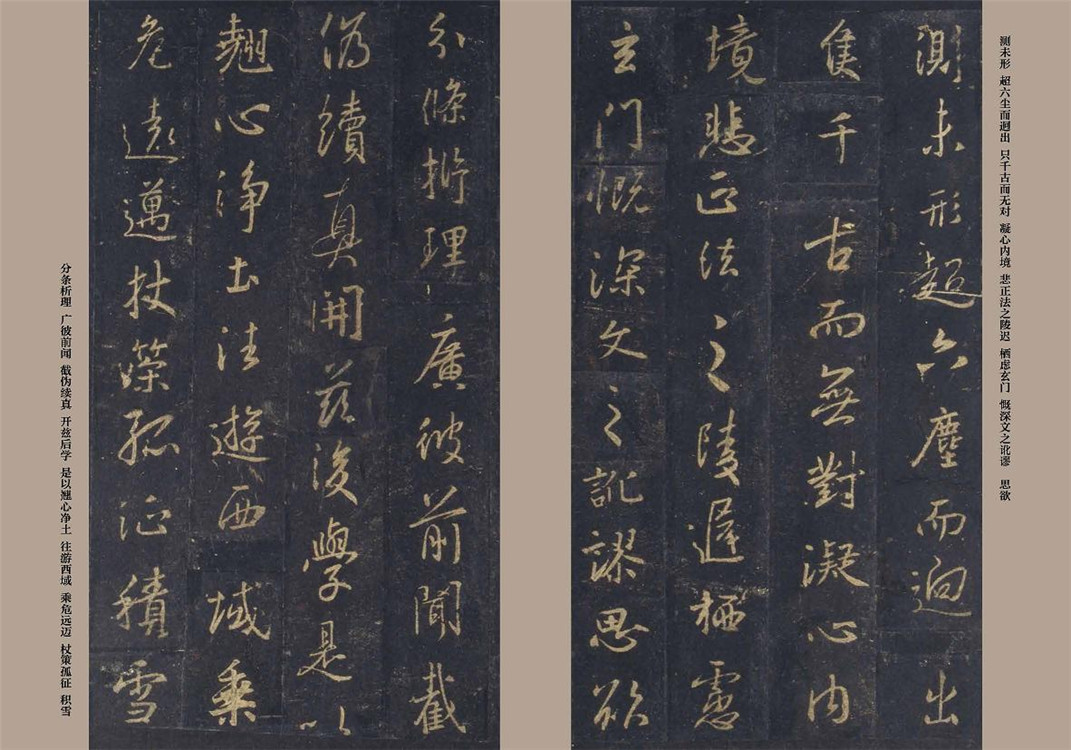 测未形 超六尘而迥出 只千古而无对 凝心内境 悲正法之陵迟 栖虑玄门 慨深文之讹谬 思欲
測未形超六塵而迥出
隻千古而無對凝心内
境悲正法之陵遲栖慮
玄門慨深文之訛謬思欲
分條析理廣彼前聞截
偽續真開茲後學是以
翹心淨土法遊西域乘
危遠邁杖策孤征積雪
分条析理 广彼前闻 截伪续真 开兹后学 是以翘心净土 往游西域 乘危远迈 杖策孤征 积雪